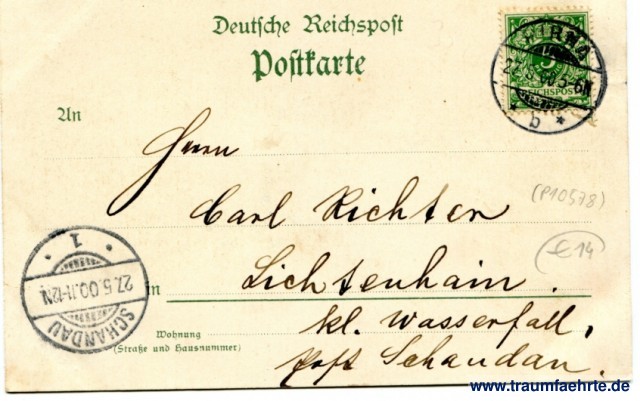 Deutsche Reichspost
Postkarte
PIRNA
5
5-6N
REICHSPOST
* b *
An
Herrn
Carl Richter
(P10578)
€ 14
in Lichtenhain.
kl. Wasserfall,
Wohnung
(Straße und Hausnummer)
post Schandau.
SCHANDAU
27.5.00.11-12N
1
www.traumfaehrte.de